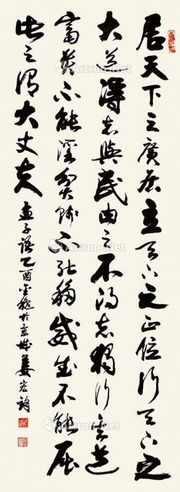 居天下之廣居立天下之正位行天下之
大道得志與民由之不得志獨行其道
富貴不能淫貧賤不能移威武不能屈
此之謂大丈夫 孟子語乙酉